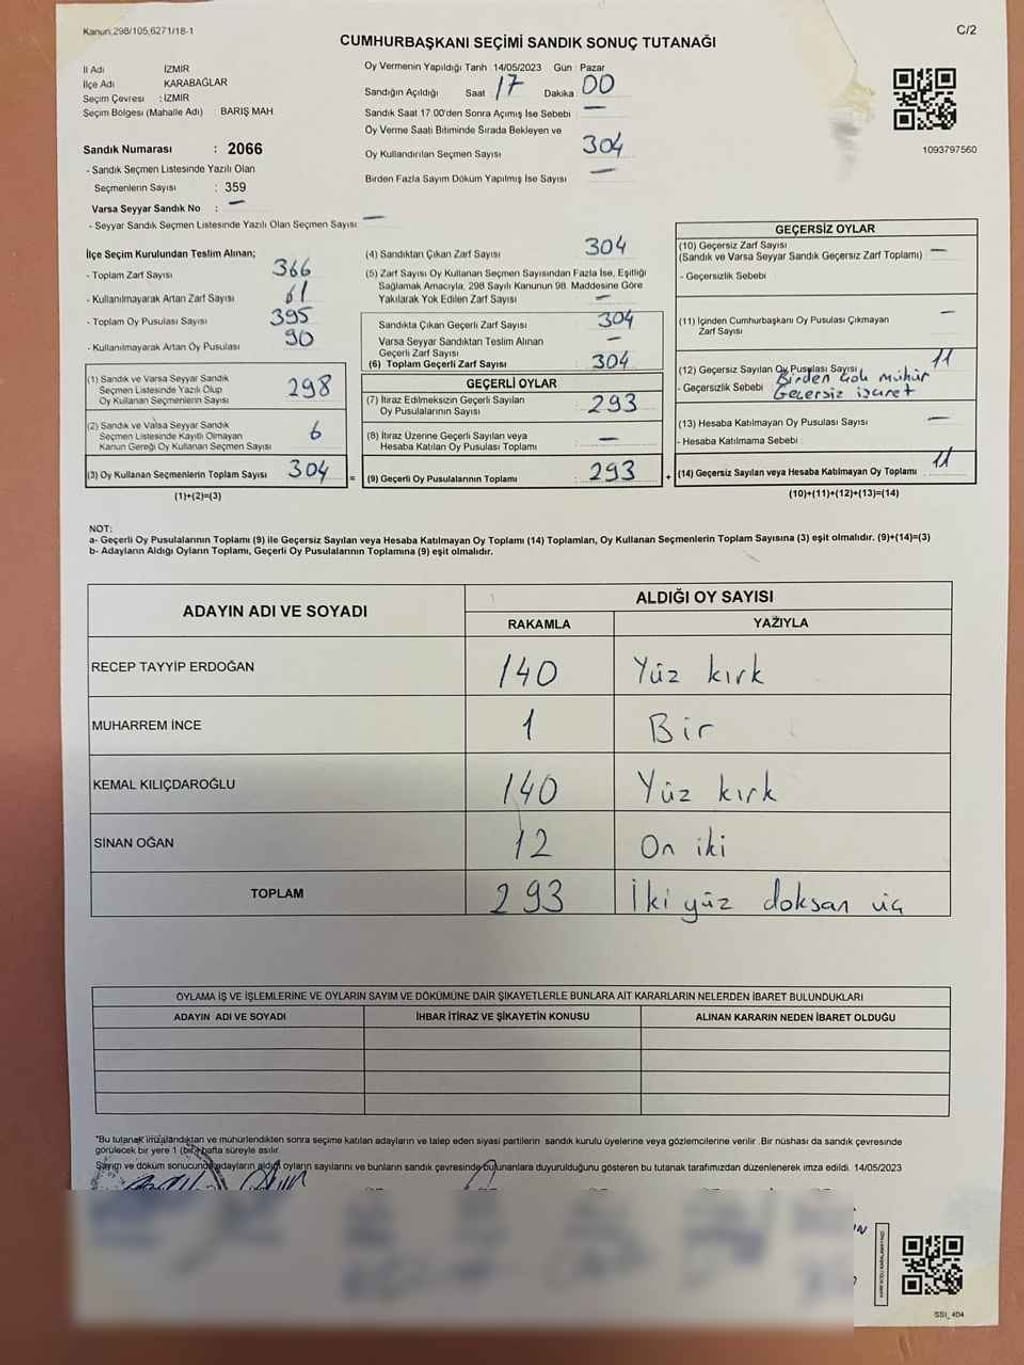 Kanun:298/105,6271/18-1
C/2
CUMHURBAŞKANI SEÇİMİ SANDIK SONUÇ TUTANAĞI
İl Adı İZMİR
İlçe Adı KARABAĞLAR
Seçim Çevresi : İZMİR
Seçim Bölgesi (Mahalle Adı) BARIŞ MAH
Oy Vermenin Yapıldığı Tarih 14/05/2023 Gün : Pazar
Sandığın Açıldığı Saat 17 Dakika 00
Sandık Saat 17 00'den Sonra Açımış İse Sebebi —
Oy Verme Saati Bitiminde Sırada Bekleyen ve
Oy Kullandırılan Seçmen Sayısı 304
Birden Fazla Sayım Döküm Yapılmış İse Sayısı —
1093797560
Sandık Numarası : 2066
- Sandık Seçmen Listesinde Yazılı Olan
Seçmenlerin Sayısı : 359
Varsa Seyyar Sandık No : —
- Seyyar Sandık Seçmen Listesinde Yazılı Olan Seçmen Sayısı —
İlçe Seçim Kurulundan Teslim Alınan;
- Toplam Zarf Sayısı 366
- Kullanılmayarak Artan Zarf Sayısı 61
- Toplam Oy Pusulası Sayısı 395
- Kullanılmayarak Artan Oy Pusulası 90
(1) Sandık ve Varsa Seyyar Sandık
Seçmen Listesinde Yazılı Olup
Oy Kullanan Seçmenlerin Sayısı 298
(2) Sandık ve Varsa Seyyar Sandık
Seçmen Listesinde Kayıtlı Olmayan
Kanun Gereği Oy Kullanan Seçmen Sayısı 6
(3) Oy Kullanan Seçmenlerin Toplam Sayısı 304 =
(1)+(2)=(3)
(4) Sandıktan Çıkan Zarf Sayısı 304
(5) Zarf Sayısı Oy Kullanan Seçmen Sayısından Fazla İse, Eşitliği
Sağlamak Amacıyla, 298 Sayılı Kanunun 98. Maddesine Göre
Yakılarak Yok Edilen Zarf Sayısı —
Sandıkta Çıkan Geçerli Zarf Sayısı 304
Varsa Seyyar Sandıktan Teslim Alınan
Geçerli Zarf Sayısı —
(6) Toplam Geçerli Zarf Sayısı 304
GEÇERLİ OYLAR
(7) İtiraz Edilmeksizin Geçerli Sayılan
Oy Pusulalarının Sayısı 293
(8) İtiraz Üzerine Geçerli Sayılan veya
Hesaba Katılan Oy Pusulası Toplamı —
(9) Geçerli Oy Pusulalarının Toplamı 293 +
GEÇERSİZ OYLAR
(10) Geçersiz Zarf Sayısı
(Sandık ve Varsa Seyyar Sandık Geçersiz Zarf Toplamı) —
- Geçersizlik Sebebi
(11) İçinden Cumhurbaşkanı Oy Pusulası Çıkmayan
Zarf Sayısı —
(12) Geçersiz Sayılan Oy Pusulası Sayısı 11
- Geçersizlik Sebebi Birden çok mühür
Geçersiz işaret
(13) Hesaba Katılmayan Oy Pusulası Sayısı —
- Hesaba Katılmama Sebebi
(14) Geçersiz Sayılan veya Hesaba Katılmayan Oy Toplamı 11
(10)+(11)+(12)+(13)=(14)
NOT:
a- Geçerli Oy Pusulalarının Toplamı (9) ile Geçersiz Sayılan veya Hesaba Katılmayan Oy Toplamı (14) Toplamları, Oy Kullanan Seçmenlerin Toplam Sayısına (3) eşit olmalıdır. (9)+(14)=(3)
b- Adayların Aldığı Oyların Toplamı, Geçerli Oy Pusulalarının Toplamına (9) eşit olmalıdır.
ADAYIN ADI VE SOYADI
ALDIĞI OY SAYISI
RAKAMLA YAZIYLA
RECEP TAYYİP ERDOĞAN 140 Yüz kırk
MUHARREM İNCE 1 Bir
KEMAL KILIÇDAROĞLU 140 Yüz kırk
SİNAN OĞAN 12 On iki
TOPLAM 293 İki yüz doksan üç
OYLAMA İŞ VE İŞLEMLERİNE VE OYLARIN SAYIM VE DÖKÜMÜNE DAİR ŞİKAYETLERLE BUNLARA AİT KARARLARIN NELERDEN İBARET BULUNDUKLARI
ADAYIN ADI VE SOYADI İHBAR İTİRAZ VE ŞİKAYETİN KONUSU ALINAN KARARIN NEDEN İBARET OLDUĞU
*Bu tutanak imzalandıktan ve mühürlendikten sonra seçime katılan adayların ve talep eden siyasi partilerin sandık kurulu üyelerine veya gözlemcilerine verilir. Bir nüshası da sandık çevresinde
görülecek bir yere 1 (bir) hafta süreyle asılır.
Sayım ve döküm sonucunda adayların aldığı oyların sayılarını ve bunların sandık çevresinde bulunanlara duyurulduğunu gösteren bu tutanak tarafımızdan düzenlenerek imza edildi. 14/05/2023
SSI_404